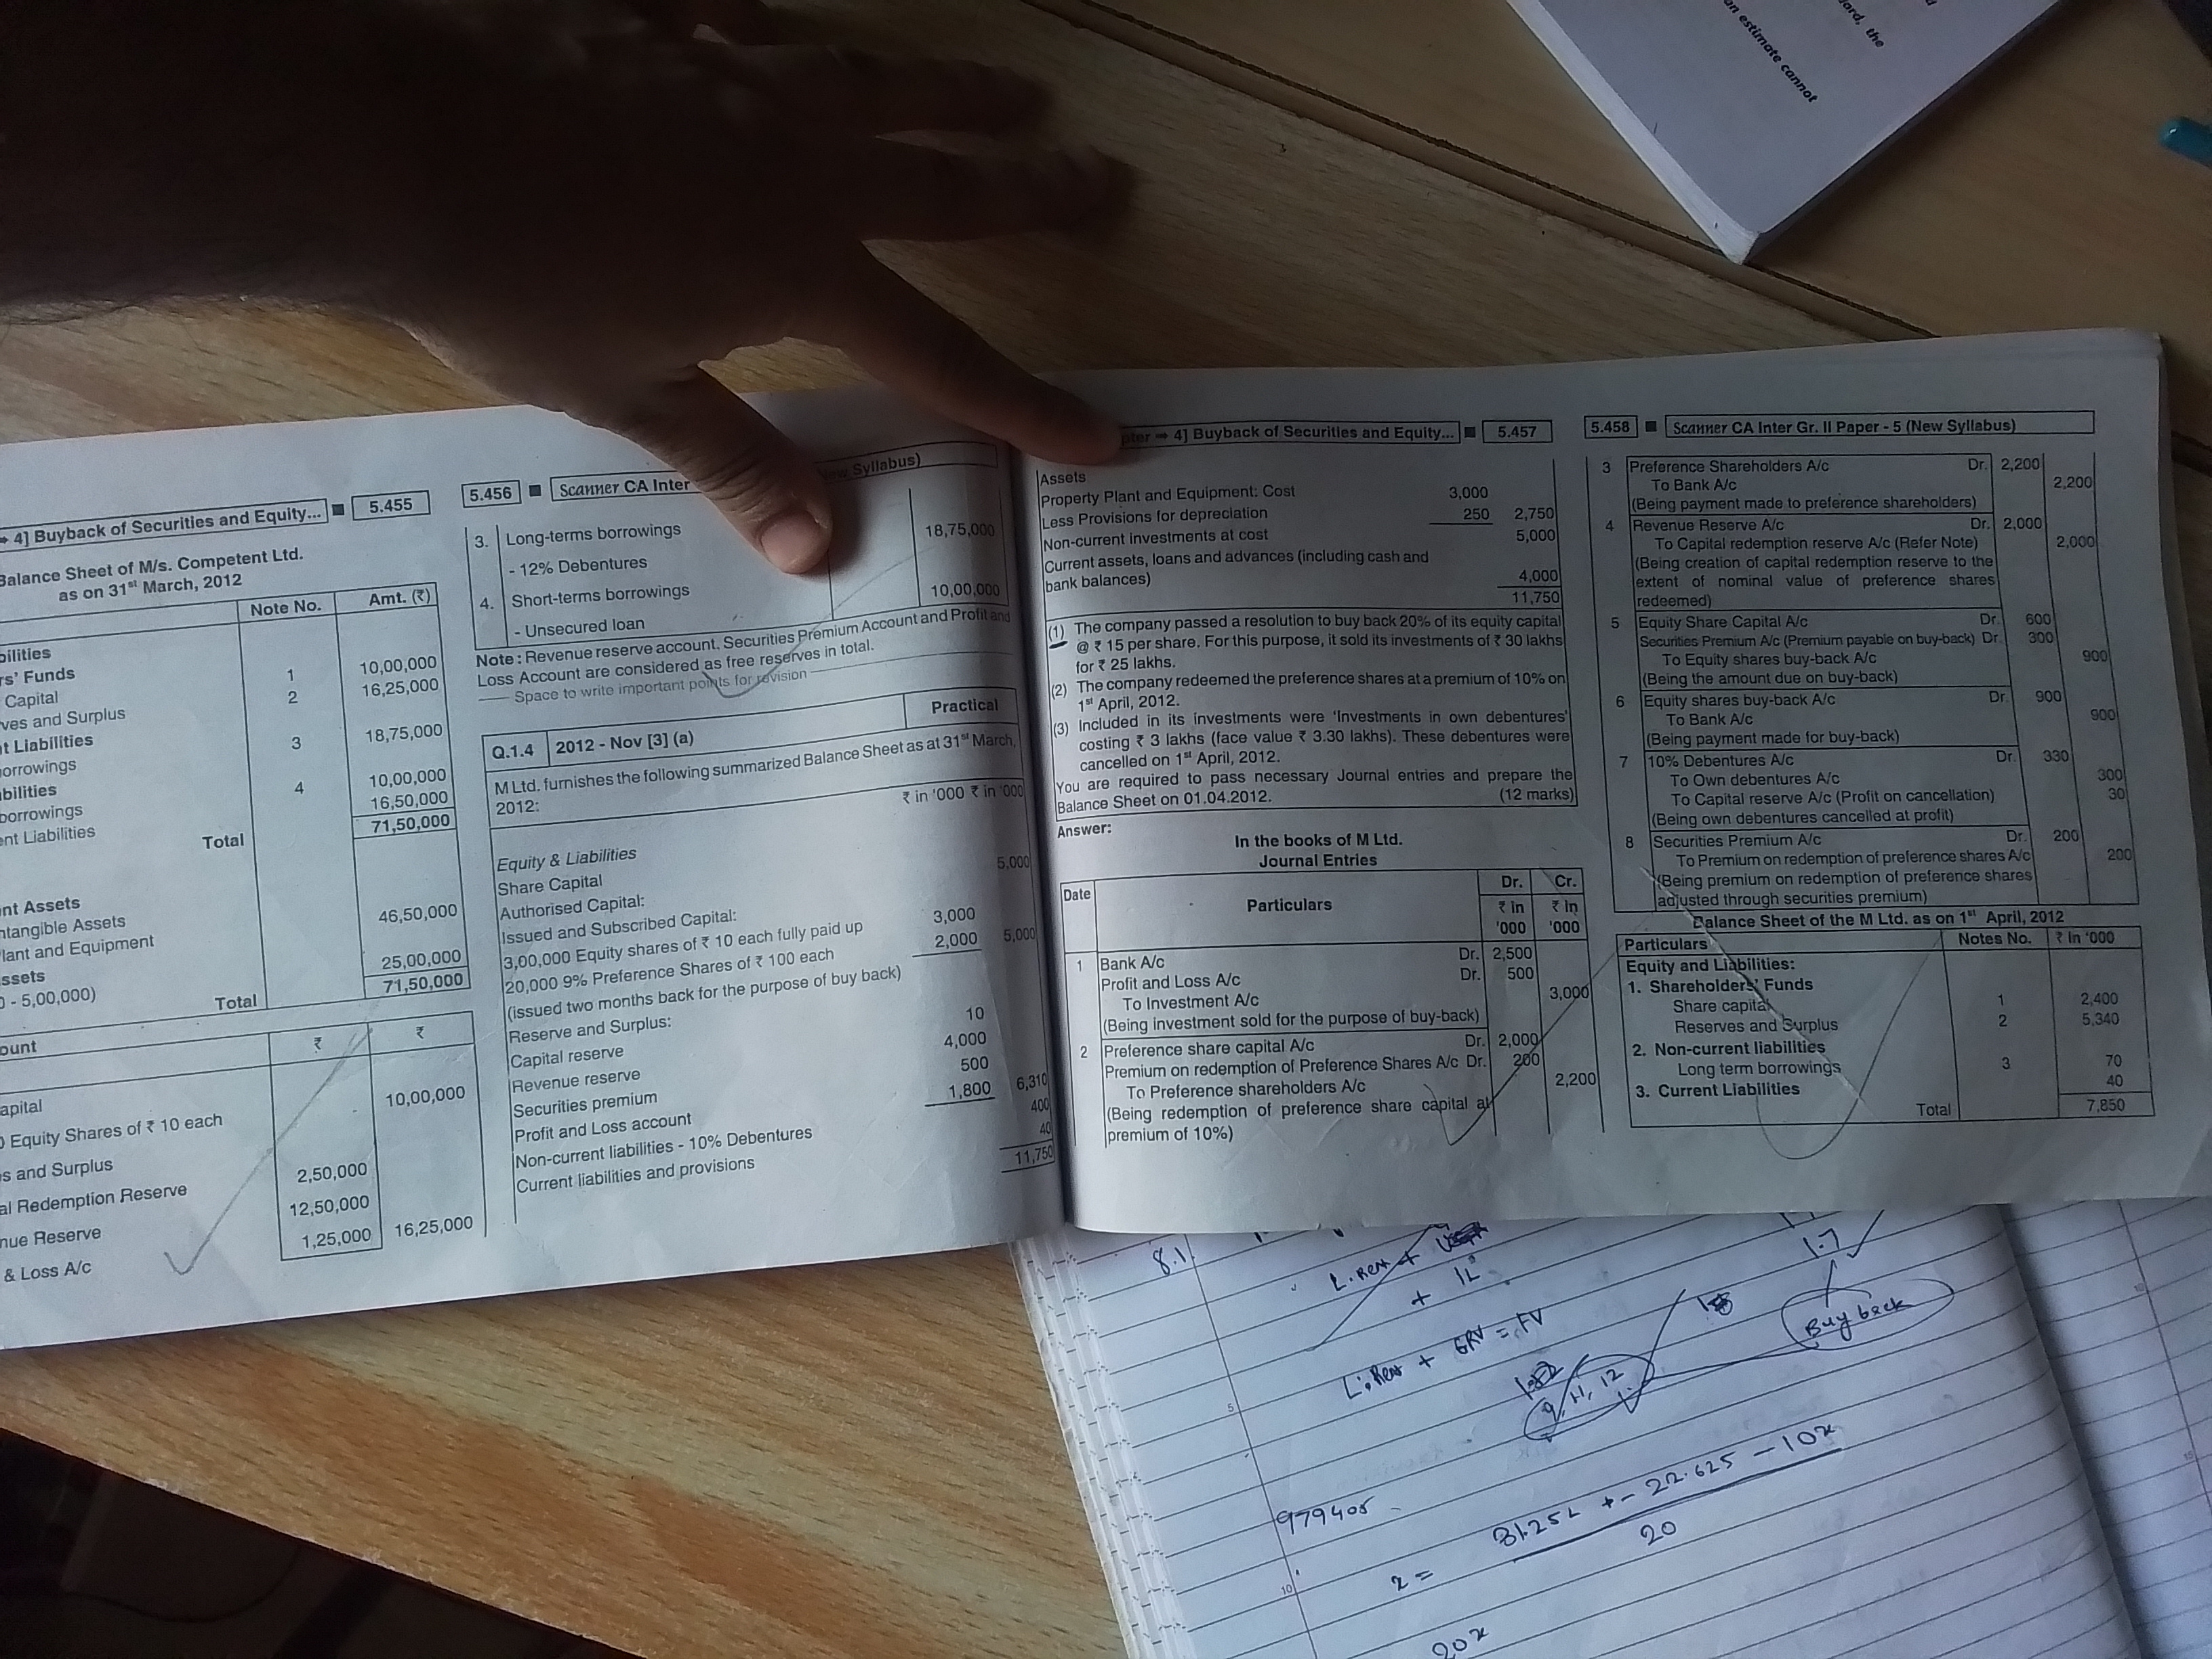 an estimate cannot
ard, the
4] Buyback of Securities and Equity... ■ 5.455
Balance Sheet of M/s. Competent Ltd.
as on 31st March, 2012
Note No. Amt. (₹)
bilities
rs' Funds
Capital 1 10,00,000
ves and Surplus 2 16,25,000
t Liabilities
orrowings 3 18,75,000
bilities
borrowings 4 10,00,000
ent Liabilities 16,50,000
Total 71,50,000
nt Assets
ntangible Assets
lant and Equipment 46,50,000
ssets
0 - 5,00,000) 25,00,000
Total 71,50,000
ount ₹ ₹
apital
0 Equity Shares of ₹ 10 each 10,00,000
s and Surplus
al Redemption Reserve 2,50,000
nue Reserve 12,50,000
& Loss A/c 1,25,000 16,25,000
5.456 ■ Scanner CA Inter
New Syllabus)
3. Long-terms borrowings
- 12% Debentures 18,75,000
4. Short-terms borrowings
- Unsecured loan 10,00,000
Note : Revenue reserve account. Securities Premium Account and Profit and
Loss Account are considered as free reserves in total.
Space to write important points for revision
Q.1.4 2012 - Nov [3] (a) Practical
M Ltd. furnishes the following summarized Balance Sheet as at 31st March,
2012:
₹ in '000 ₹ in '000
Equity & Liabilities
Share Capital
Authorised Capital: 5,000
Issued and Subscribed Capital:
3,00,000 Equity shares of ₹ 10 each fully paid up 3,000
20,000 9% Preference Shares of ₹ 100 each 2,000 5,000
(issued two months back for the purpose of buy back)
Reserve and Surplus:
Capital reserve 10
Revenue reserve 4,000
Securities premium 500
Profit and Loss account 1,800 6,310
Non-current liabilities - 10% Debentures 400
Current liabilities and provisions 40
11,750
pter ➡ 4] Buyback of Securities and Equity... ■ 5.457
Assets
Property Plant and Equipment: Cost 3,000
Less Provisions for depreciation 250 2,750
Non-current investments at cost 5,000
Current assets, loans and advances (including cash and
bank balances) 4,000
11,750
(1) The company passed a resolution to buy back 20% of its equity capital
@ ₹ 15 per share. For this purpose, it sold its investments of ₹ 30 lakhs
for ₹ 25 lakhs.
(2) The company redeemed the preference shares at a premium of 10% on
1st April, 2012.
(3) Included in its investments were 'Investments in own debentures'
costing ₹ 3 lakhs (face value ₹ 3.30 lakhs). These debentures were
cancelled on 1st April, 2012.
You are required to pass necessary Journal entries and prepare the
Balance Sheet on 01.04.2012. (12 marks)
Answer:
In the books of M Ltd.
Journal Entries
Date Particulars Dr. Cr.
₹ in ₹ in
'000 '000
1 Bank A/c Dr. 2,500
Profit and Loss A/c Dr. 500
To Investment A/c 3,000
(Being investment sold for the purpose of buy-back)
2 Preference share capital A/c Dr. 2,000
Premium on redemption of Preference Shares A/c Dr. 200
To Preference shareholders A/c 2,200
(Being redemption of preference share capital at
premium of 10%)
5.458 ■ Scanner CA Inter Gr. II Paper - 5 (New Syllabus)
3 Preference Shareholders A/c Dr. 2,200
To Bank A/c 2,200
(Being payment made to preference shareholders)
4 Revenue Reserve A/c Dr. 2,000
To Capital redemption reserve A/c (Refer Note) 2,000
(Being creation of capital redemption reserve to the
extent of nominal value of preference shares
redeemed)
5 Equity Share Capital A/c Dr. 600
Securities Premium A/c (Premium payable on buy-back) Dr. 300
To Equity shares buy-back A/c 900
(Being the amount due on buy-back)
6 Equity shares buy-back A/c Dr. 900
To Bank A/c 900
(Being payment made for buy-back)
7 10% Debentures A/c Dr. 330
To Own debentures A/c 300
To Capital reserve A/c (Profit on cancellation) 30
(Being own debentures cancelled at profit)
8 Securities Premium A/c Dr. 200
To Premium on redemption of preference shares A/c 200
(Being premium on redemption of preference shares
adjusted through securities premium)
Balance Sheet of the M Ltd. as on 1st April, 2012
Particulars Notes No. ₹ In '000
Equity and Liabilities:
1. Shareholders' Funds
Share capital 1 2,400
Reserves and Surplus 2 5,340
2. Non-current liabilities
Long term borrowings 3 70
3. Current Liabilities 40
Total 7,850
8.1
L. Rent +
+ IL
1.7
Buy back
L. Rent + GRV = FV
9, 11, 12
979405
x = 31.25L + - 22.625 - 10x
20
20x